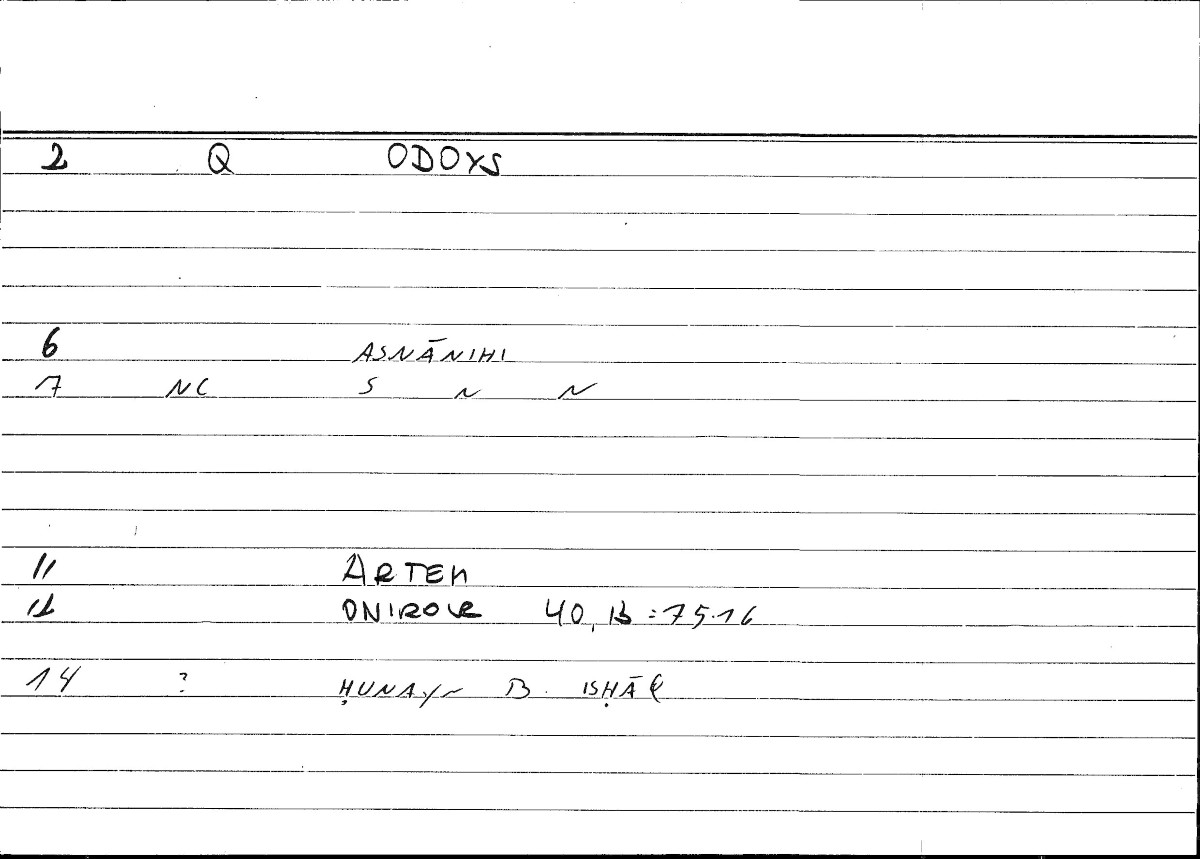 2 Q ODOYS
6 ASNĀNIHI
7 NC S N N
11 ARTEM
12 ONIROCR 40,13 = 75.16
14 ? ḤUNAYN B. ISḤĀQ